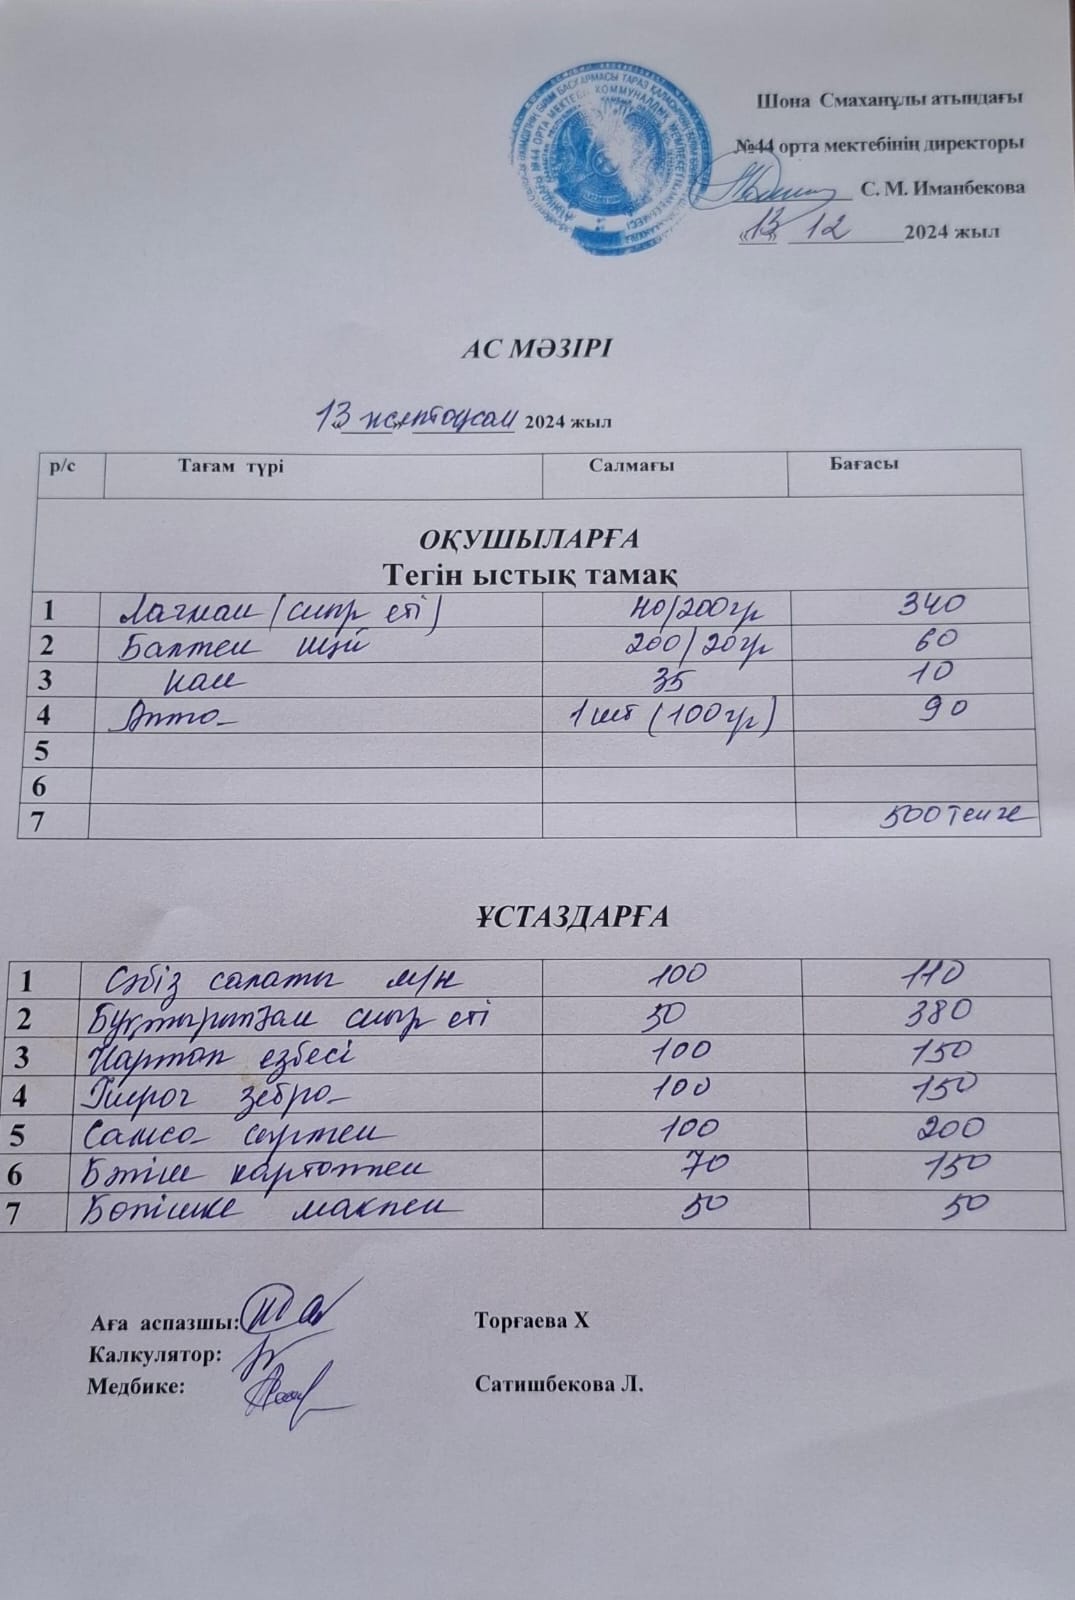 Шона Смаханұлы атындағы
№44 орта мектебінің директоры
С. М. Иманбекова
«13» 12 2024 жыл
АС МӘЗІРІ
«13» желтоқсан 2024 жыл
р/с Тағам түрі Салмағы Бағасы
ОҚУШЫЛАРҒА
Тегін ыстық тамақ
1 Лагман (сиыр еті) 40/200гр 340
2 Балмен шәй 200/20гр 60
3 нан 35 10
4 1шт (100гр) 90
5
6
7 500 тенге
ҰСТАЗДАРҒА
1 Сәбіз салаты м/н 100 110
2 Бұқтырылған сиыр еті 50 380
3 Картоп езбесі 100 150
4 Пирог зебра 100 150
5 Самса 100 200
6 Бәліш картоппен 70 150
7 Бөлішке макпен 50 50
Аға аспазшы: Торғаева Х
Калкулятор:
Медбике: Сатишбекова Л.